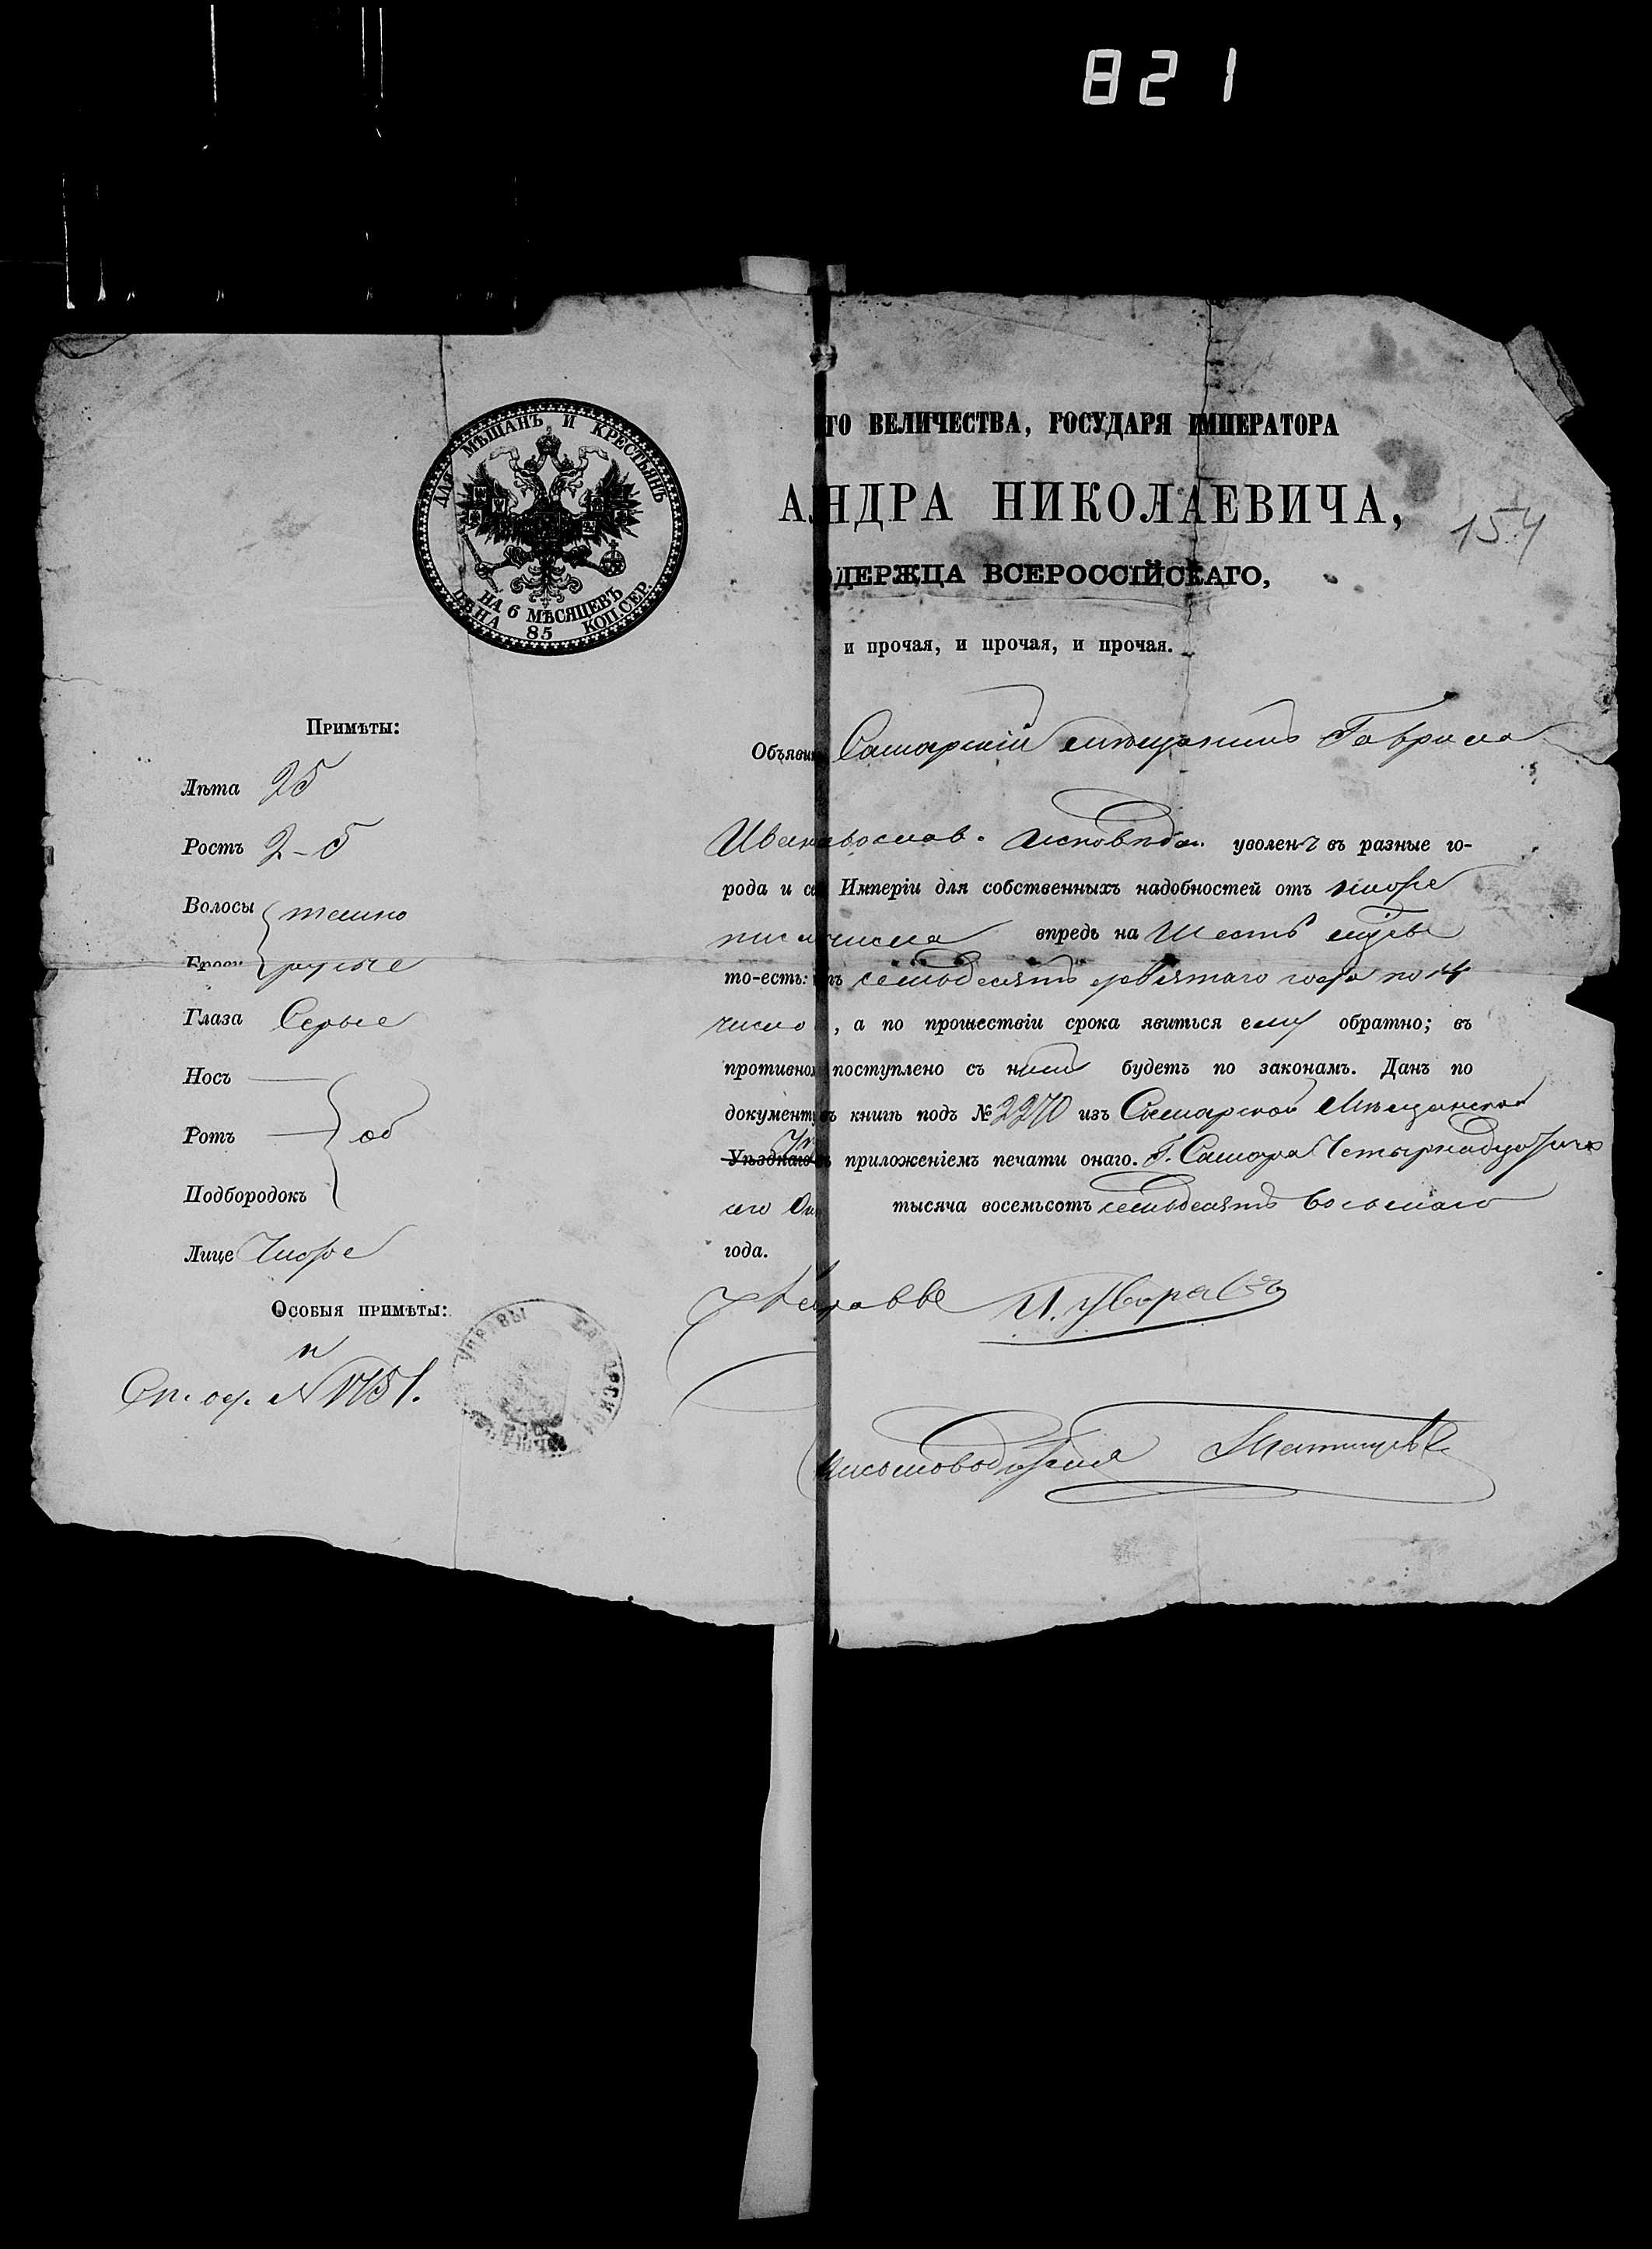 821
ДЛЯ МѢЩАНЪ И КРЕСТЬЯНЪ
НА 6 МѢСЯЦЕВЪ
ЦѢНА 85 КОП.СЕР
ГО ВЕЛИЧЕСТВА, ГОСУДАРЯ ИМПЕРАТОРА
АНДРА НИКОЛАЕВИЧА,
154
ОДЕРЖЦА ВСЕРОССІЙСКАГО,
и прочая, и прочая, и прочая.
Примѣты:
Лѣта 25
Ростъ 2-5
Волосы темно
Брови русые
Глаза Серые
Носъ
Ротъ об
Подбородокъ
Лице Чистое
Особыя примѣты:
н
№ 1751.
УПРАВЫ САМАРСКОЙ
Объяви Самарскій мѣщанинъ Гаврила
Иван вослав. исповѣда. уволенъ въ разные го-
рода и се Имперіи для собственныхъ надобностей отъ ниже
писа числа впредь на Шесть мѣсе
то-есть: семьдесятъ девятаго года по 14
число , а по прошествіи срока явиться ему обратно; въ
противном поступлено съ нимъ будетъ по законамъ. Данъ по
документу въ книгѣ подъ № 2270 изъ Самарской Мѣщанской
Уп
Уѣзднаго приложеніемъ печати онаго. Г. Самара Четырнадцатого
его Ок тысяча восемьсотъ семьдесятъ восьмаго
года.
И. Уваровъ
Письмоводителя